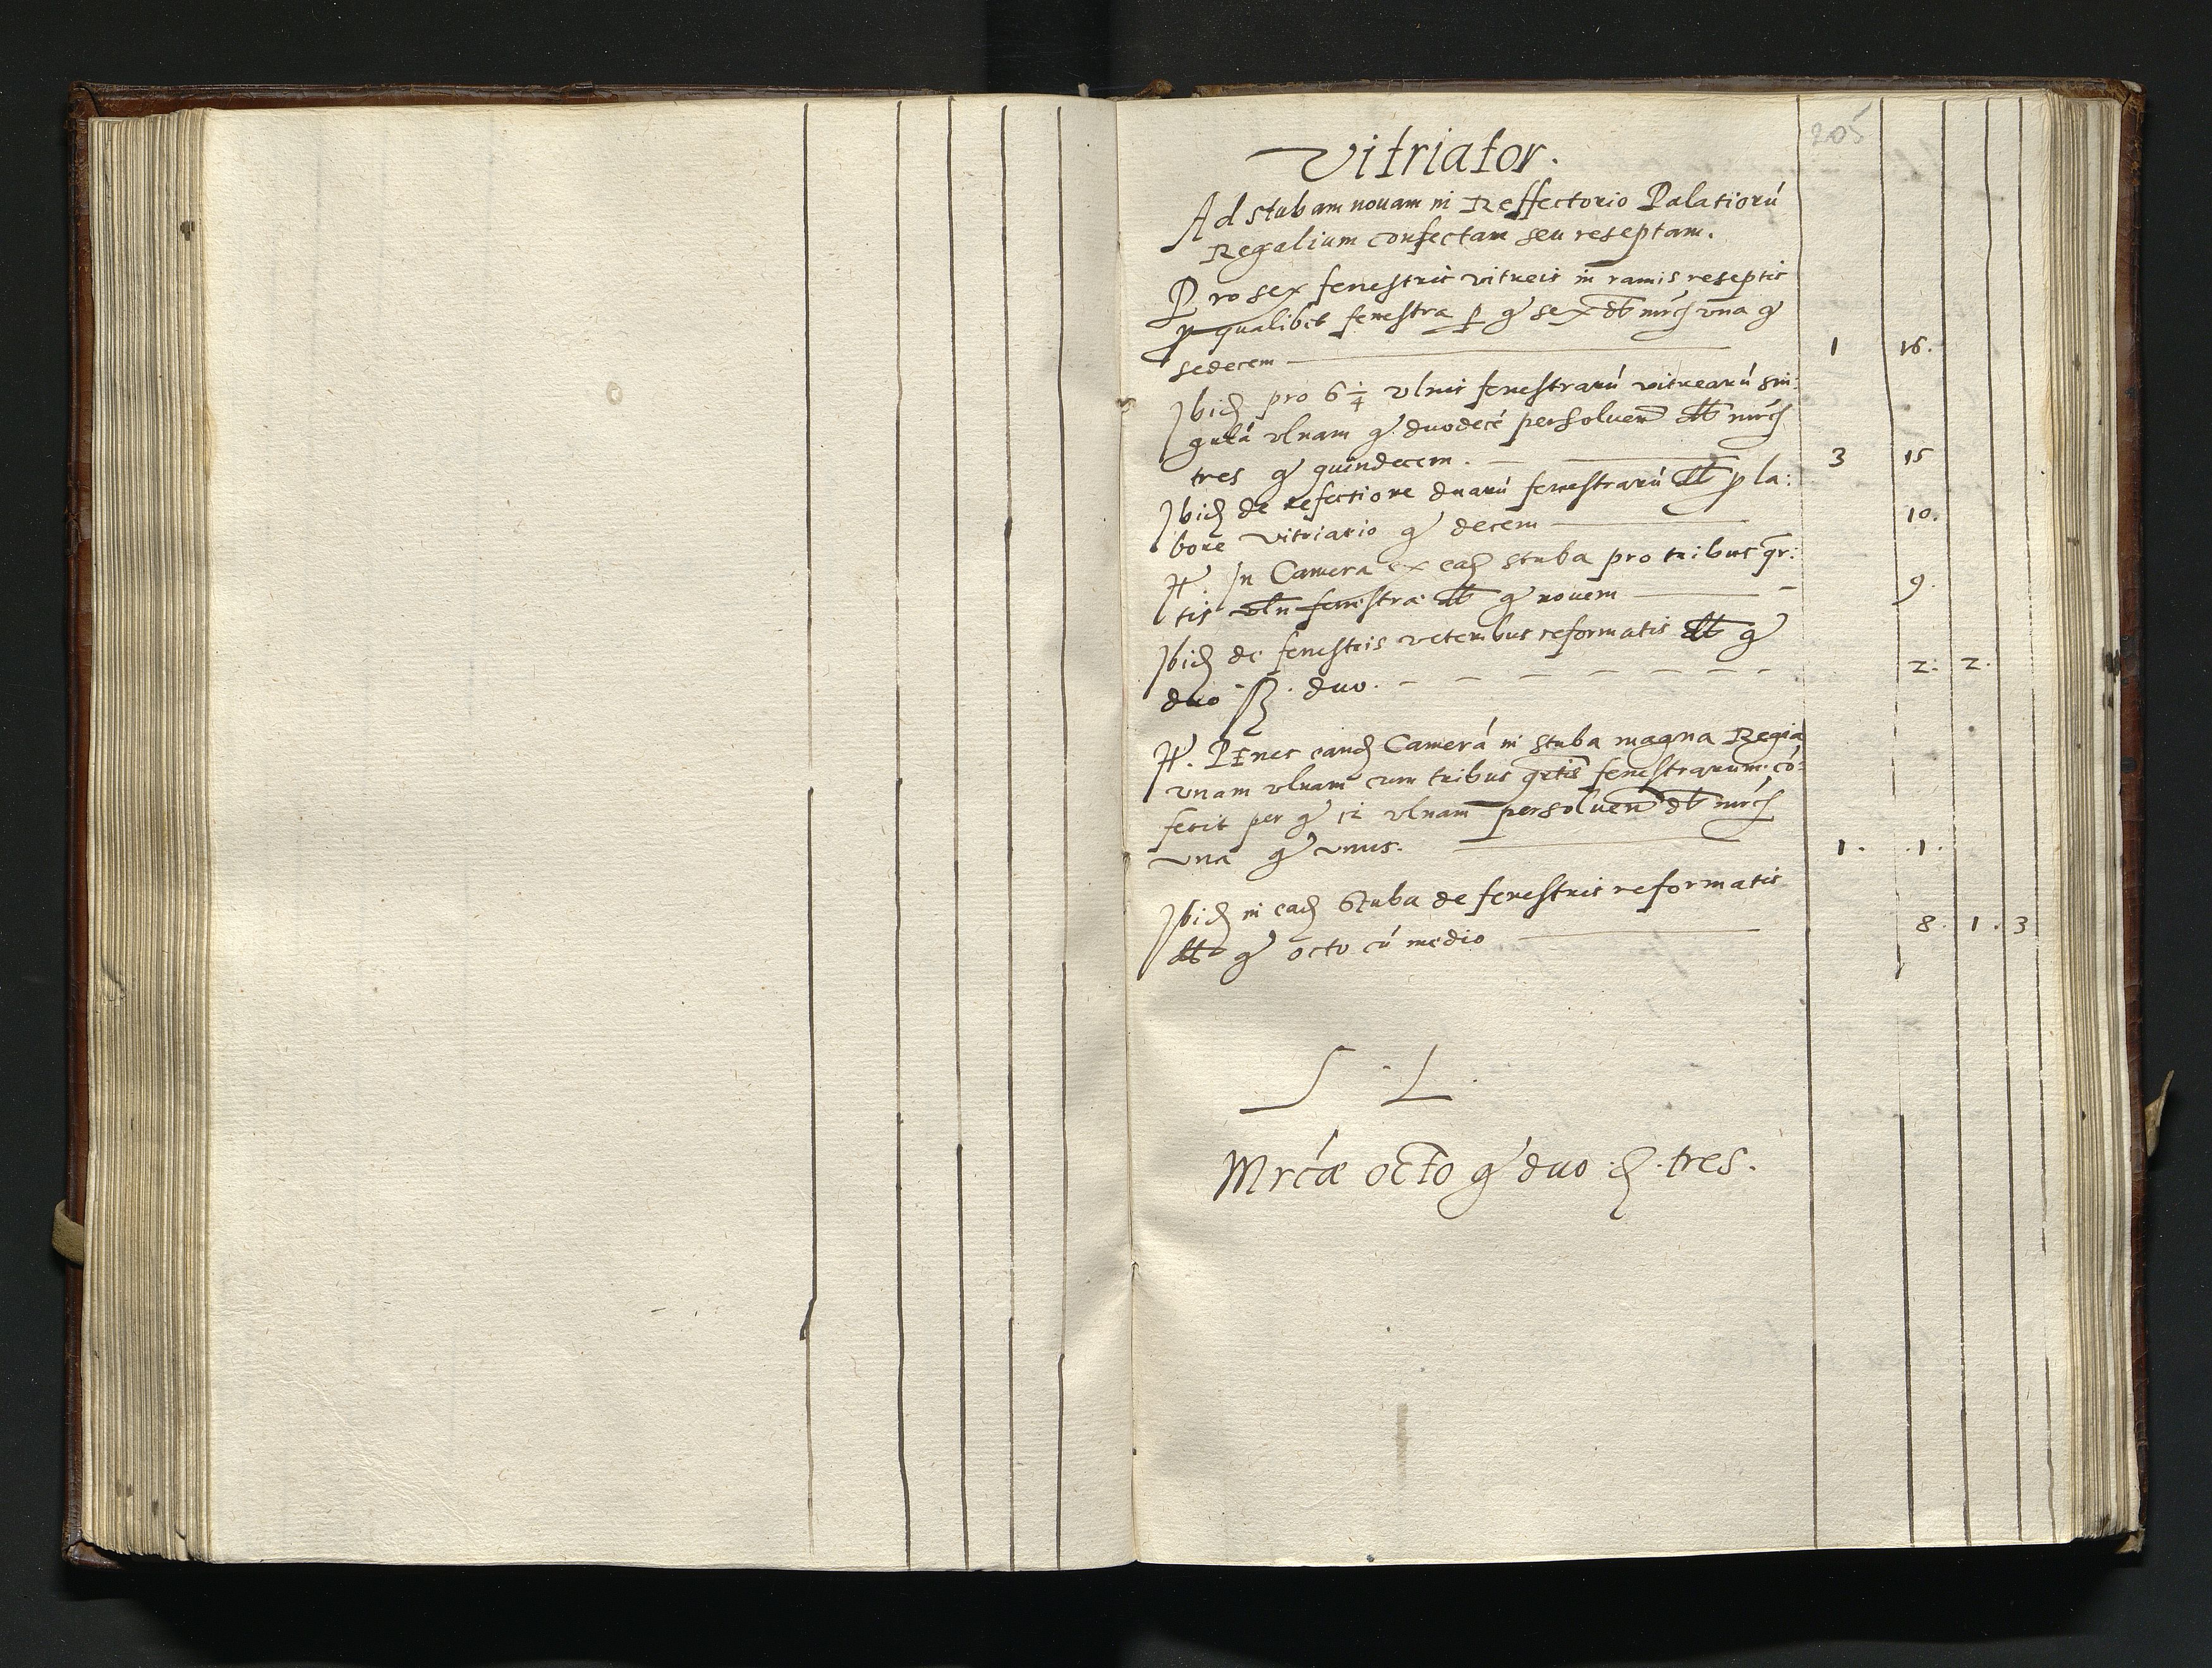 205
Vitriator.
Ad stubam nouam in Reffectorio Palatiorú
Regalium confectam seu reseptam.
Pro sex fenestris vitreis in ramis reseptis
p qualibet fenestra p g sex dt mrc vna g
sedecem — 1 16.
Ibid pro 6 1/4 vlnis fenestrarú vitrearú sin:
gulá vlnam g duodecé persoluen dt mrc
tres g quindecem. — 3 15
Ibid de refectione duarú fenestrarú dt p la:
bore vitriario g decem — 10.
It. In Camera ex ead stuba pro tribus qr:
tis vln fenestrae dt g nouem — 9.
Ibid de fenestris veteribus reformatis dt g
duo ß. duo. — 2. 2.
It. Penes eand Camerá in stuba magna Regia
vnam vlnam cum tribus qrtis fenestrarum có:
fecit per g 12 vlnam persoluen dt mrc
vna g vnus. — 1. 1.
Ibid in ead Stuba de fenestris reformatis
dt g octo cú medio — 8. 1. 3
S. L.
Mrcæ octo g duo d. tres.